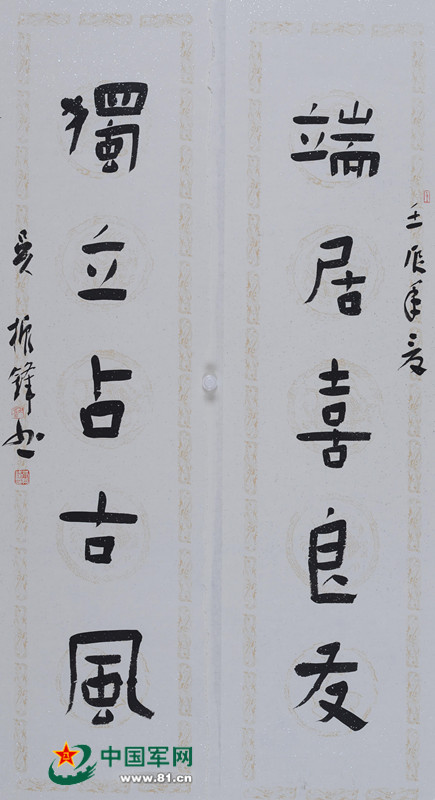 壬辰年夏
端居喜良友
獨立占古風
吳振鋒书
中国军网
www.81.cn